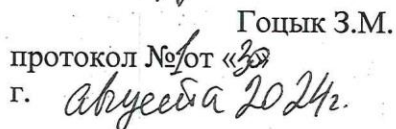 Гоцык З.М.
протокол №1от «30»
г. августа 2024г.